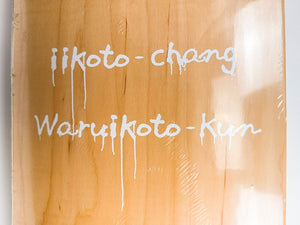 iikoto-chang
Waruikoto-Kun